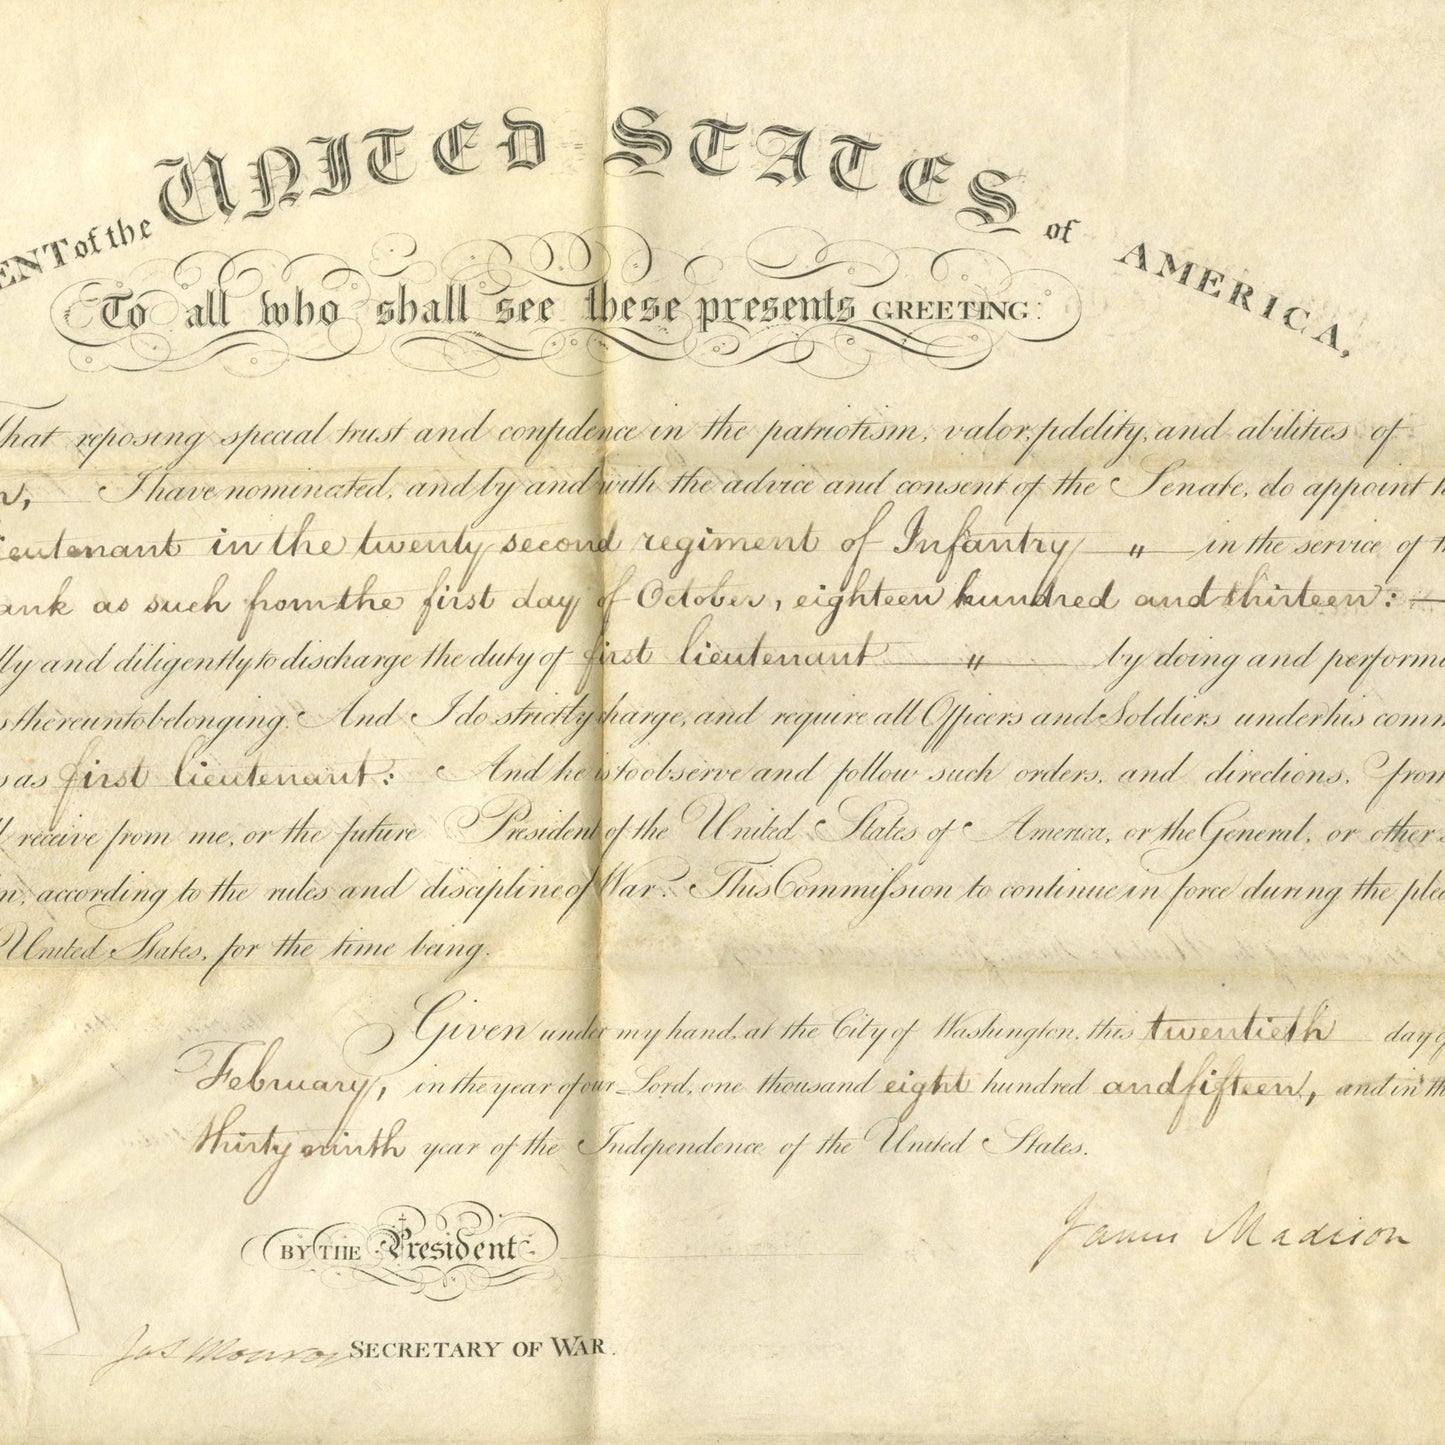 ENT of the UNITED STATES of AMERICA,
To all who shall see these presents GREETING:
That reposing special trust and confidence in the patriotism, valor, fidelity, and abilities of
I have nominated, and by and with the advice and consent of the Senate, do appoint h
ieutenant in the twenty second regiment of Infantry " in the service of th
ank as such from the first day of October, eighteen hundred and thirteen: —
lly and diligently to discharge the duty of first lieutenant " by doing and performi
s thereunto belonging. And I do strictly charge, and require all Officers and Soldiers under his comm
s as first lieutenant: And he is to observe and follow such orders, and directions, from
ll receive from me, or the future President of the United States of America, or the General, or other s
n, according to the rules and discipline of War. This Commission to continue in force during the plea
United States, for the time being.
Given under my hand, at the City of Washington, this twentieth day of
February, in the year of our Lord, one thousand eight hundred and fifteen, and in the
thirty ninth year of the Independence of the United States.
James Madison
BY THE President
Jas Monroe SECRETARY OF WAR.